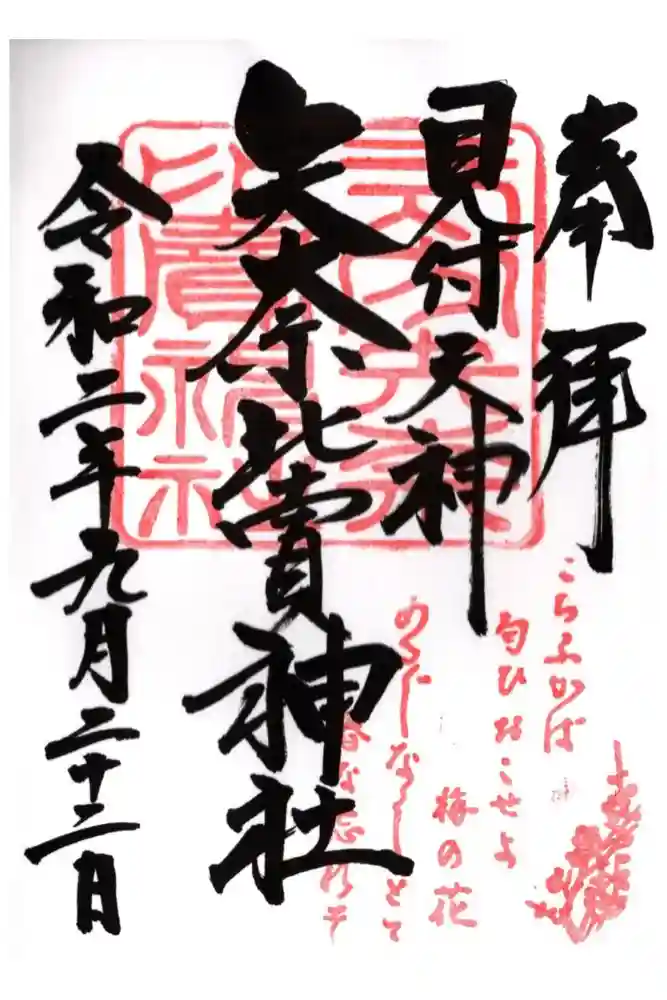 奉拝
見付天神
矢奈比賣神社
令和二年九月二十二日
こちふかば
匂ひおこせよ
梅の花
あるじなしとて
春な忘れそ